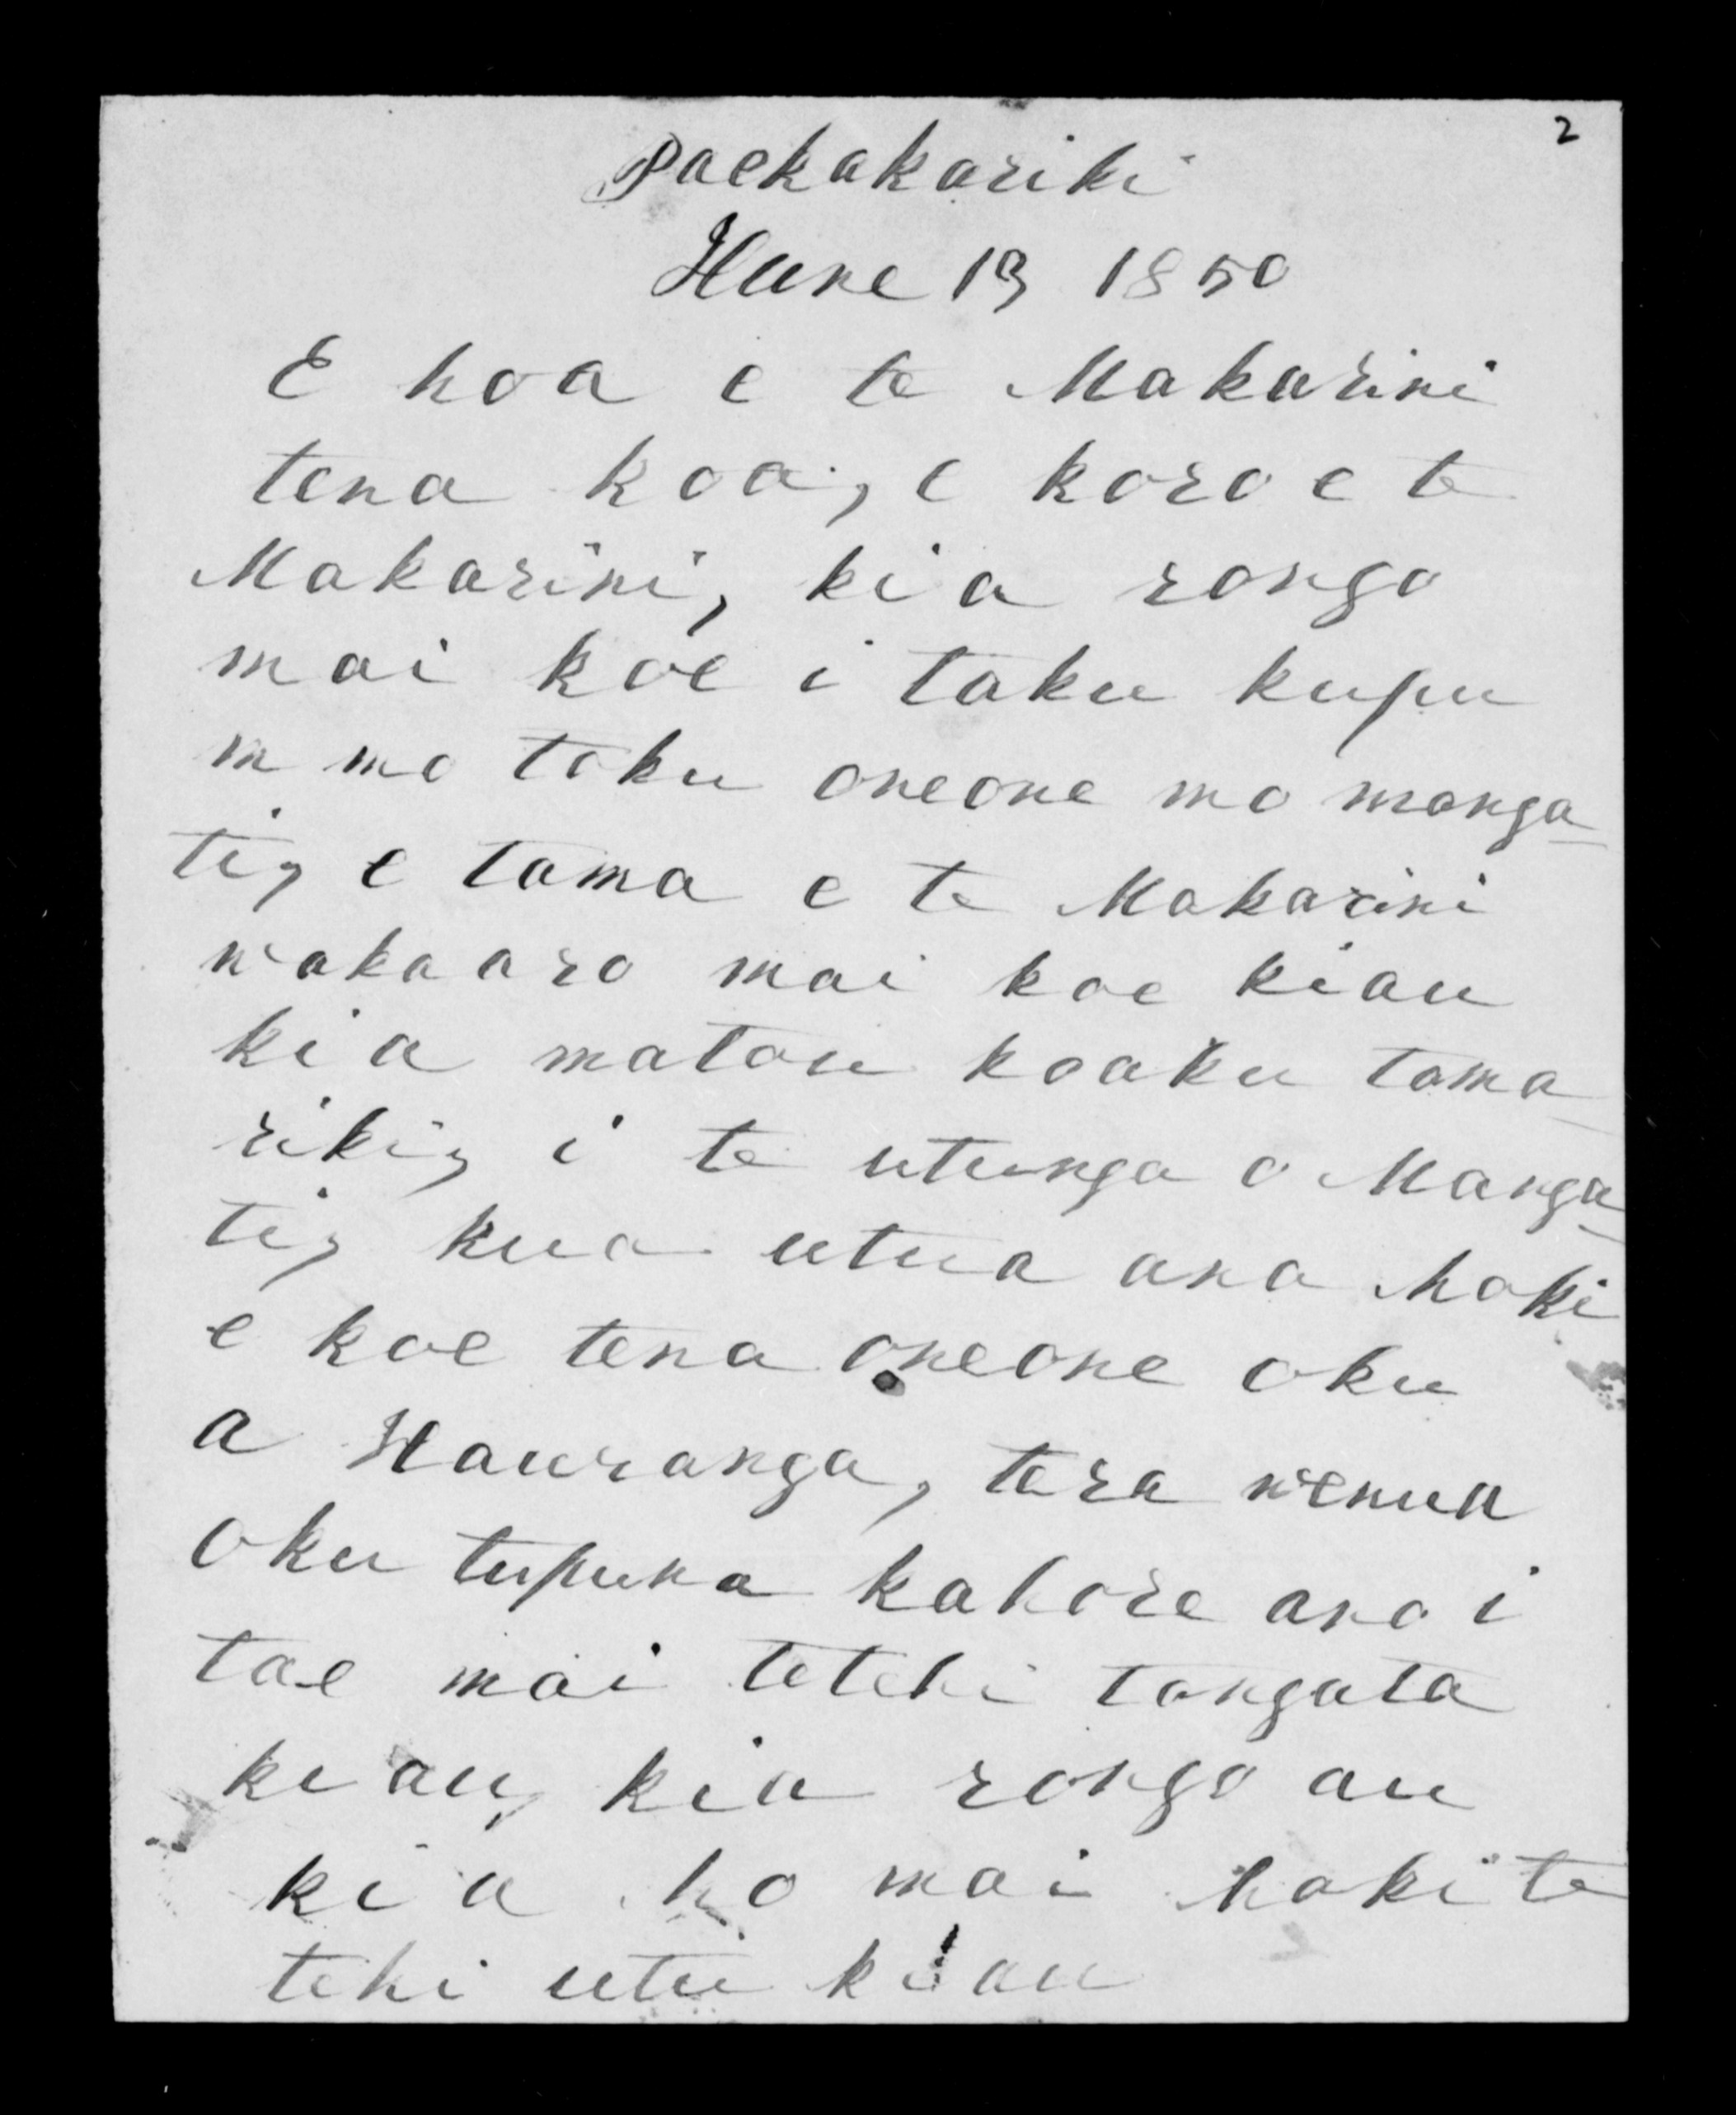 2
Paekakariki
Hune 13 1850
E hoa e te Makarini
tena koa, e koro e te
Makarini, kia rongo
mai koe i taku kupu
m mo toku oneone mo manga
ti, e tama e te Makarini
wakaaro mai koe kiau
kia matou koaku tama
riki, i te utunga o Manga
ti, kua utua ana hoki
e koe tena oneone oku
a Hauranga, tera wenua
oku tupuna kahore ano i
tae mai tetehi tangata
ki au, kia rongo au
kia ho mai hoki te
tehi utu kiau